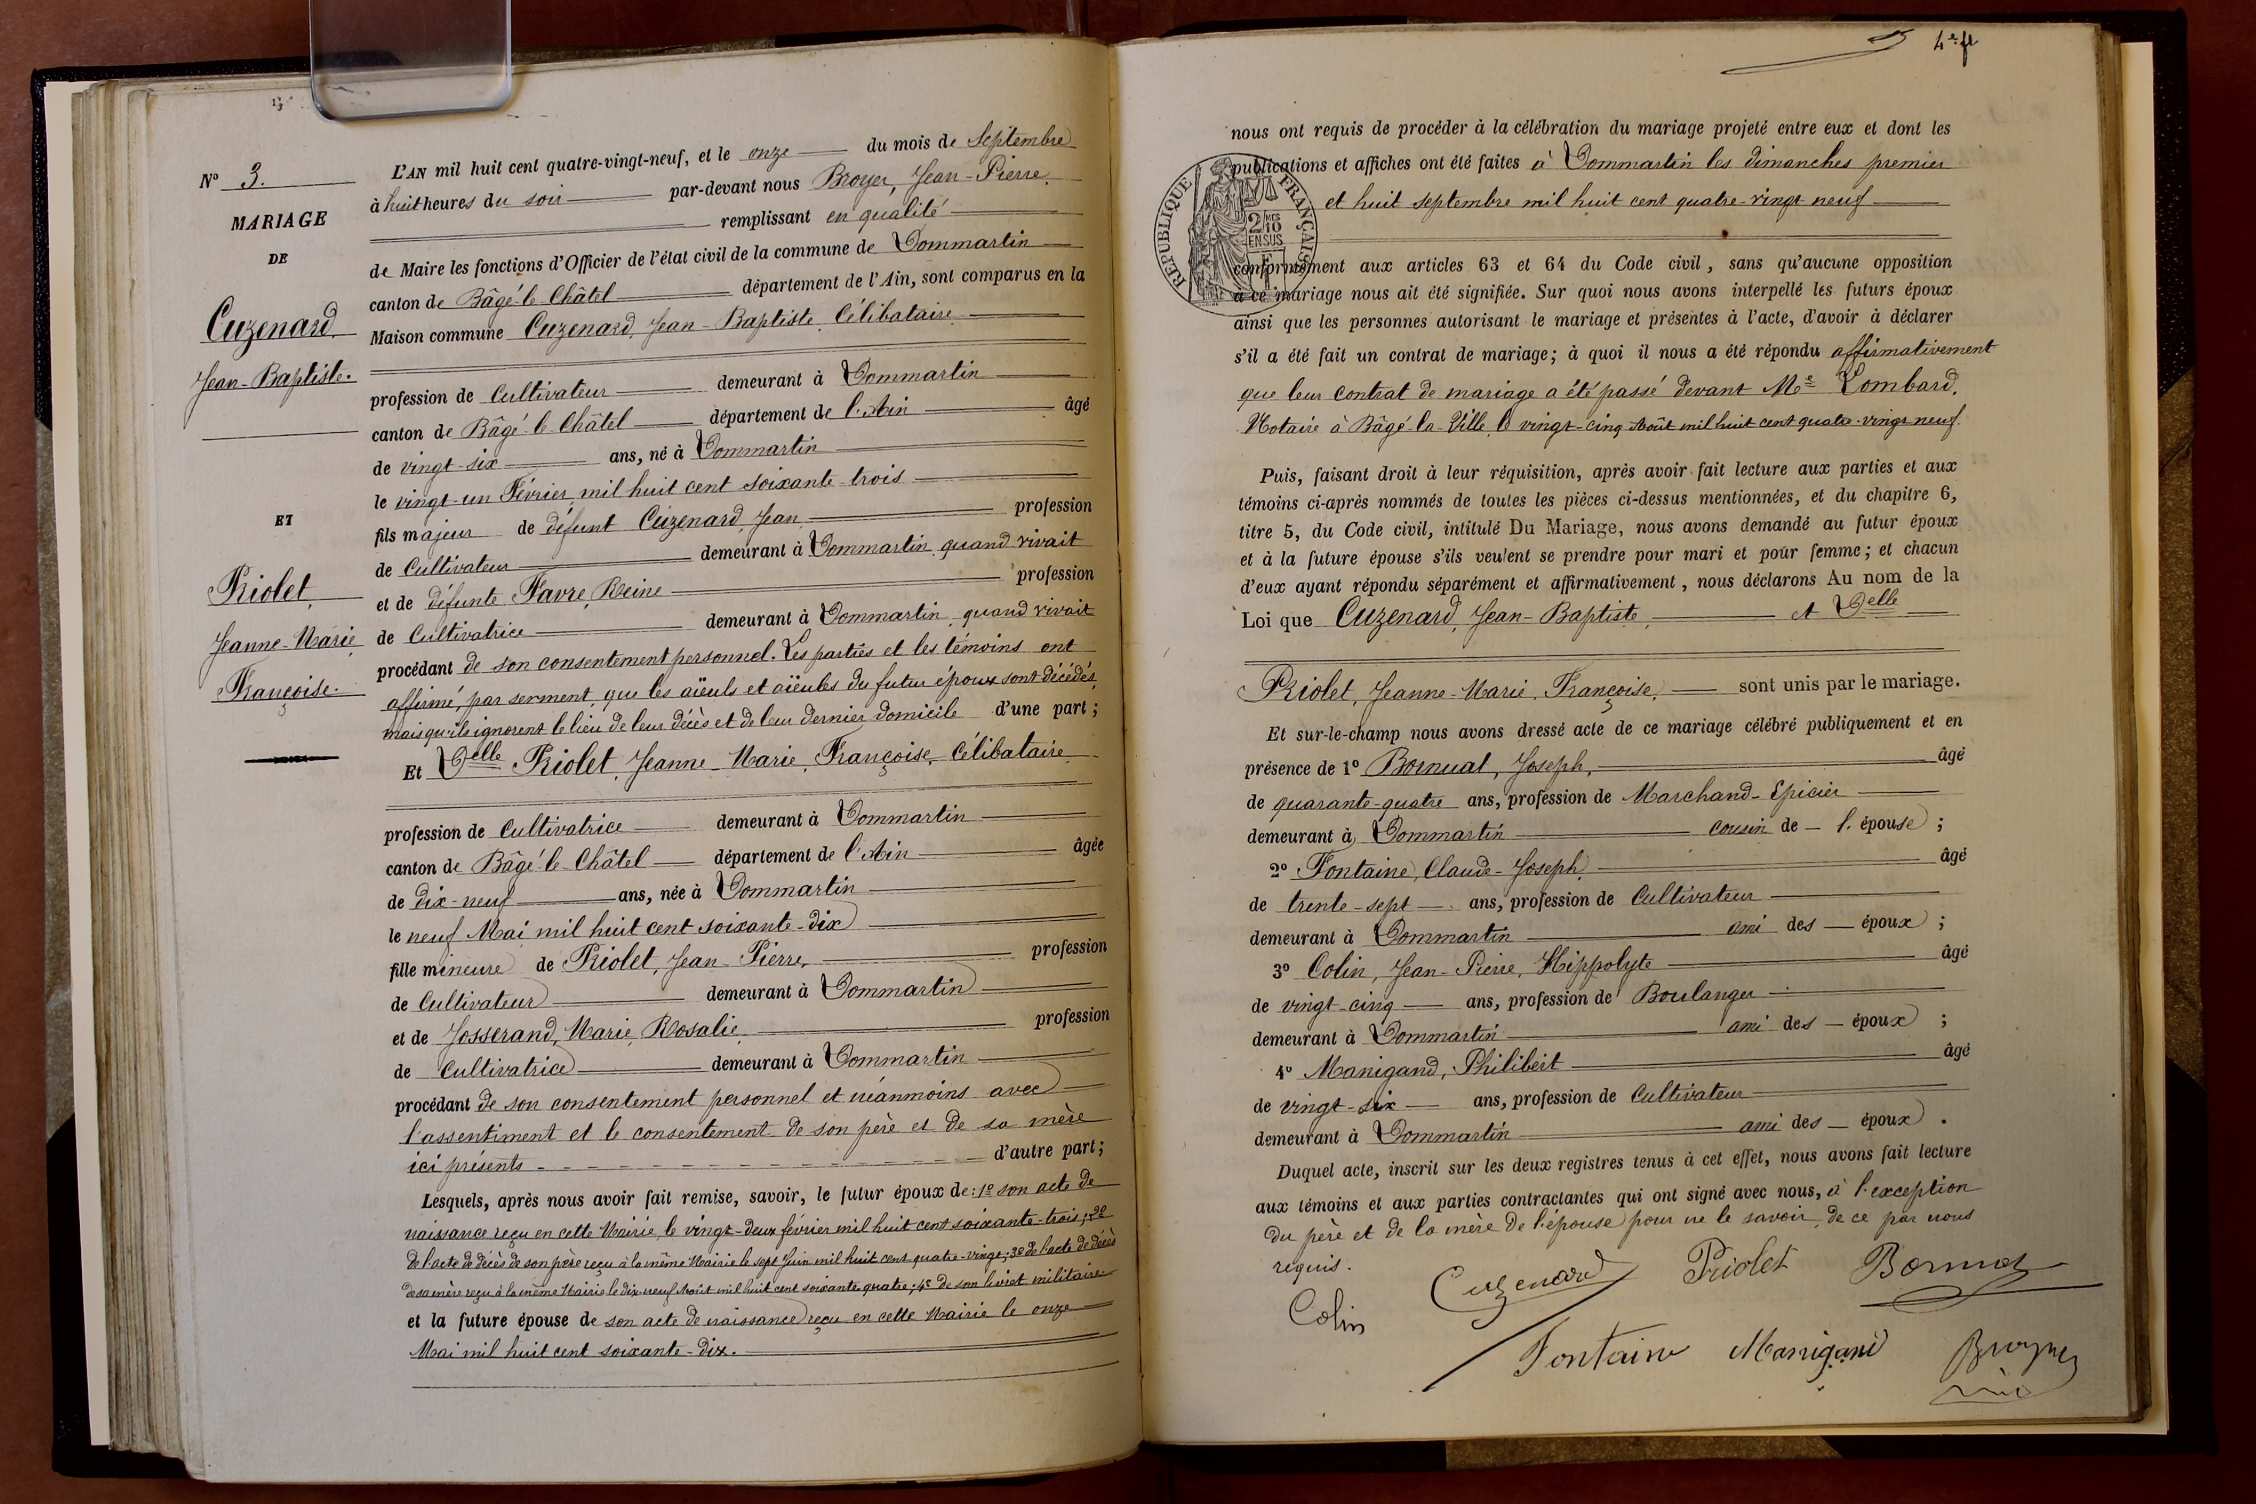 4e. f
N° 3.
MARIAGE
DE
Cuzenard
Jean-Baptiste.
ET
Priolet,
Jeanne-Marie
Françoise.
L'AN mil huit cent quatre-vingt-neuf, et le onze du mois de Septembre
à huit heures du soir par-devant nous Broyer, Jean-Pierre,
remplissant en qualité
de Maire les fonctions d'Officier de l'état civil de la commune de Dommartin
canton de Bâgé-le-Châtel département de l'Ain, sont comparus en la
Maison commune Cuzenard, Jean-Baptiste, Célibataire
profession de Cultivateur demeurant à Dommartin
canton de Bâgé-le-Châtel département de l'Ain âgé
de vingt-six ans, né à Dommartin
le vingt-un Février mil huit cent soixante-trois
fils majeur de défunt Cuzenard, Jean profession
de Cultivateur demeurant à Dommartin quand vivait
et de défunte Favre, Reine profession
de Cultivatrice demeurant à Dommartin, quand vivait
procédant de son consentement personnel. Les parties et les témoins ont
affirmé, par serment, que les aïeuls et aïeules du futur époux sont décédés,
mais qu'ils ignorent le lieu de leur décès et de leur dernier domicile d'une part;
Et Delle Priolet, Jeanne-Marie, Françoise, Célibataire
profession de Cultivatrice demeurant à Dommartin
canton de Bâgé-le-Châtel département de l'Ain âgée
de dix-neuf ans, née à Dommartin
le neuf Mai mil huit cent soixante-dix
fille mineure de Priolet, Jean-Pierre, profession
de Cultivateur demeurant à Dommartin
et de Josserand, Marie Rosalie, profession
de Cultivatrice demeurant à Dommartin
procédant de son consentement personnel et néanmoins avec
l'assentiment et le consentement de son père et de sa mère
ici présents d'autre part;
Lesquels, après nous avoir fait remise, savoir, le futur époux de: 1° son acte de
naissance reçu en cette Mairie le vingt-deux février mil huit cent soixante-trois; 2°
de l'acte de décès de son père reçu à la même Mairie le sept Juin mil huit cent quatre-vingt; 3° de l'acte de décès
de sa mère reçu à la même Mairie le dix-neuf Août mil huit cent soixante quatre; 4° de son livret militaire
et la future épouse de son acte de naissance reçu en cette Mairie le onze
Mai mil huit cent soixante-dix.
nous ont requis de procéder à la célébration du mariage projeté entre eux et dont les
publications et affiches ont été faites à Dommartin les dimanches premier
et huit septembre mil huit cent quatre-vingt neuf
RÉPUBLIQUE FRANÇAISE
2/10 EN SUS
conformément aux articles 63 et 64 du Code civil, sans qu'aucune opposition
à ce mariage nous ait été signifiée. Sur quoi nous avons interpellé les futurs époux
ainsi que les personnes autorisant le mariage et présentes à l'acte, d'avoir à déclarer
s'il a été fait un contrat de mariage; à quoi il nous a été répondu affirmativement
que leur contrat de mariage a été passé devant Me Lombard,
Notaire à Bâgé-la-Ville, le vingt-cinq Août mil huit cent quatre-vingt neuf.
Puis, faisant droit à leur réquisition, après avoir fait lecture aux parties et aux
témoins ci-après nommés de toutes les pièces ci-dessus mentionnées, et du chapitre 6,
titre 5, du Code civil, intitulé Du Mariage, nous avons demandé au futur époux
et à la future épouse s'ils veulent se prendre pour mari et pour femme; et chacun
d'eux ayant répondu séparément et affirmativement, nous déclarons Au nom de la
Loi que Cuzenard, Jean-Baptiste, et Delle
Priolet, Jeanne-Marie, Françoise, sont unis par le mariage.
Et sur-le-champ nous avons dressé acte de ce mariage célébré publiquement et en
présence de 1° Bornuat, Joseph, âgé
de quarante-quatre ans, profession de Marchand-Epicier
demeurant à Dommartin cousin de l'épouse;
2° Fontaine, Claude-Joseph, âgé
de trente-sept ans, profession de Cultivateur
demeurant à Dommartin ami des époux;
3° Colin, Jean-Pierre, Hippolyte âgé
de vingt-cinq ans, profession de Boulanger
demeurant à Dommartin ami des époux;
4° Manigand, Philibert âgé
de vingt-six ans, profession de Cultivateur
demeurant à Dommartin ami des époux.
Duquel acte, inscrit sur les deux registres tenus à cet effet, nous avons fait lecture
aux témoins et aux parties contractantes qui ont signé avec nous, à l'exception
du père et de la mère de l'épouse pour ne le savoir, de ce par nous
requis.
Cuzenard Priolet Bornuat
Colin
Fontaine Manigand Broyer